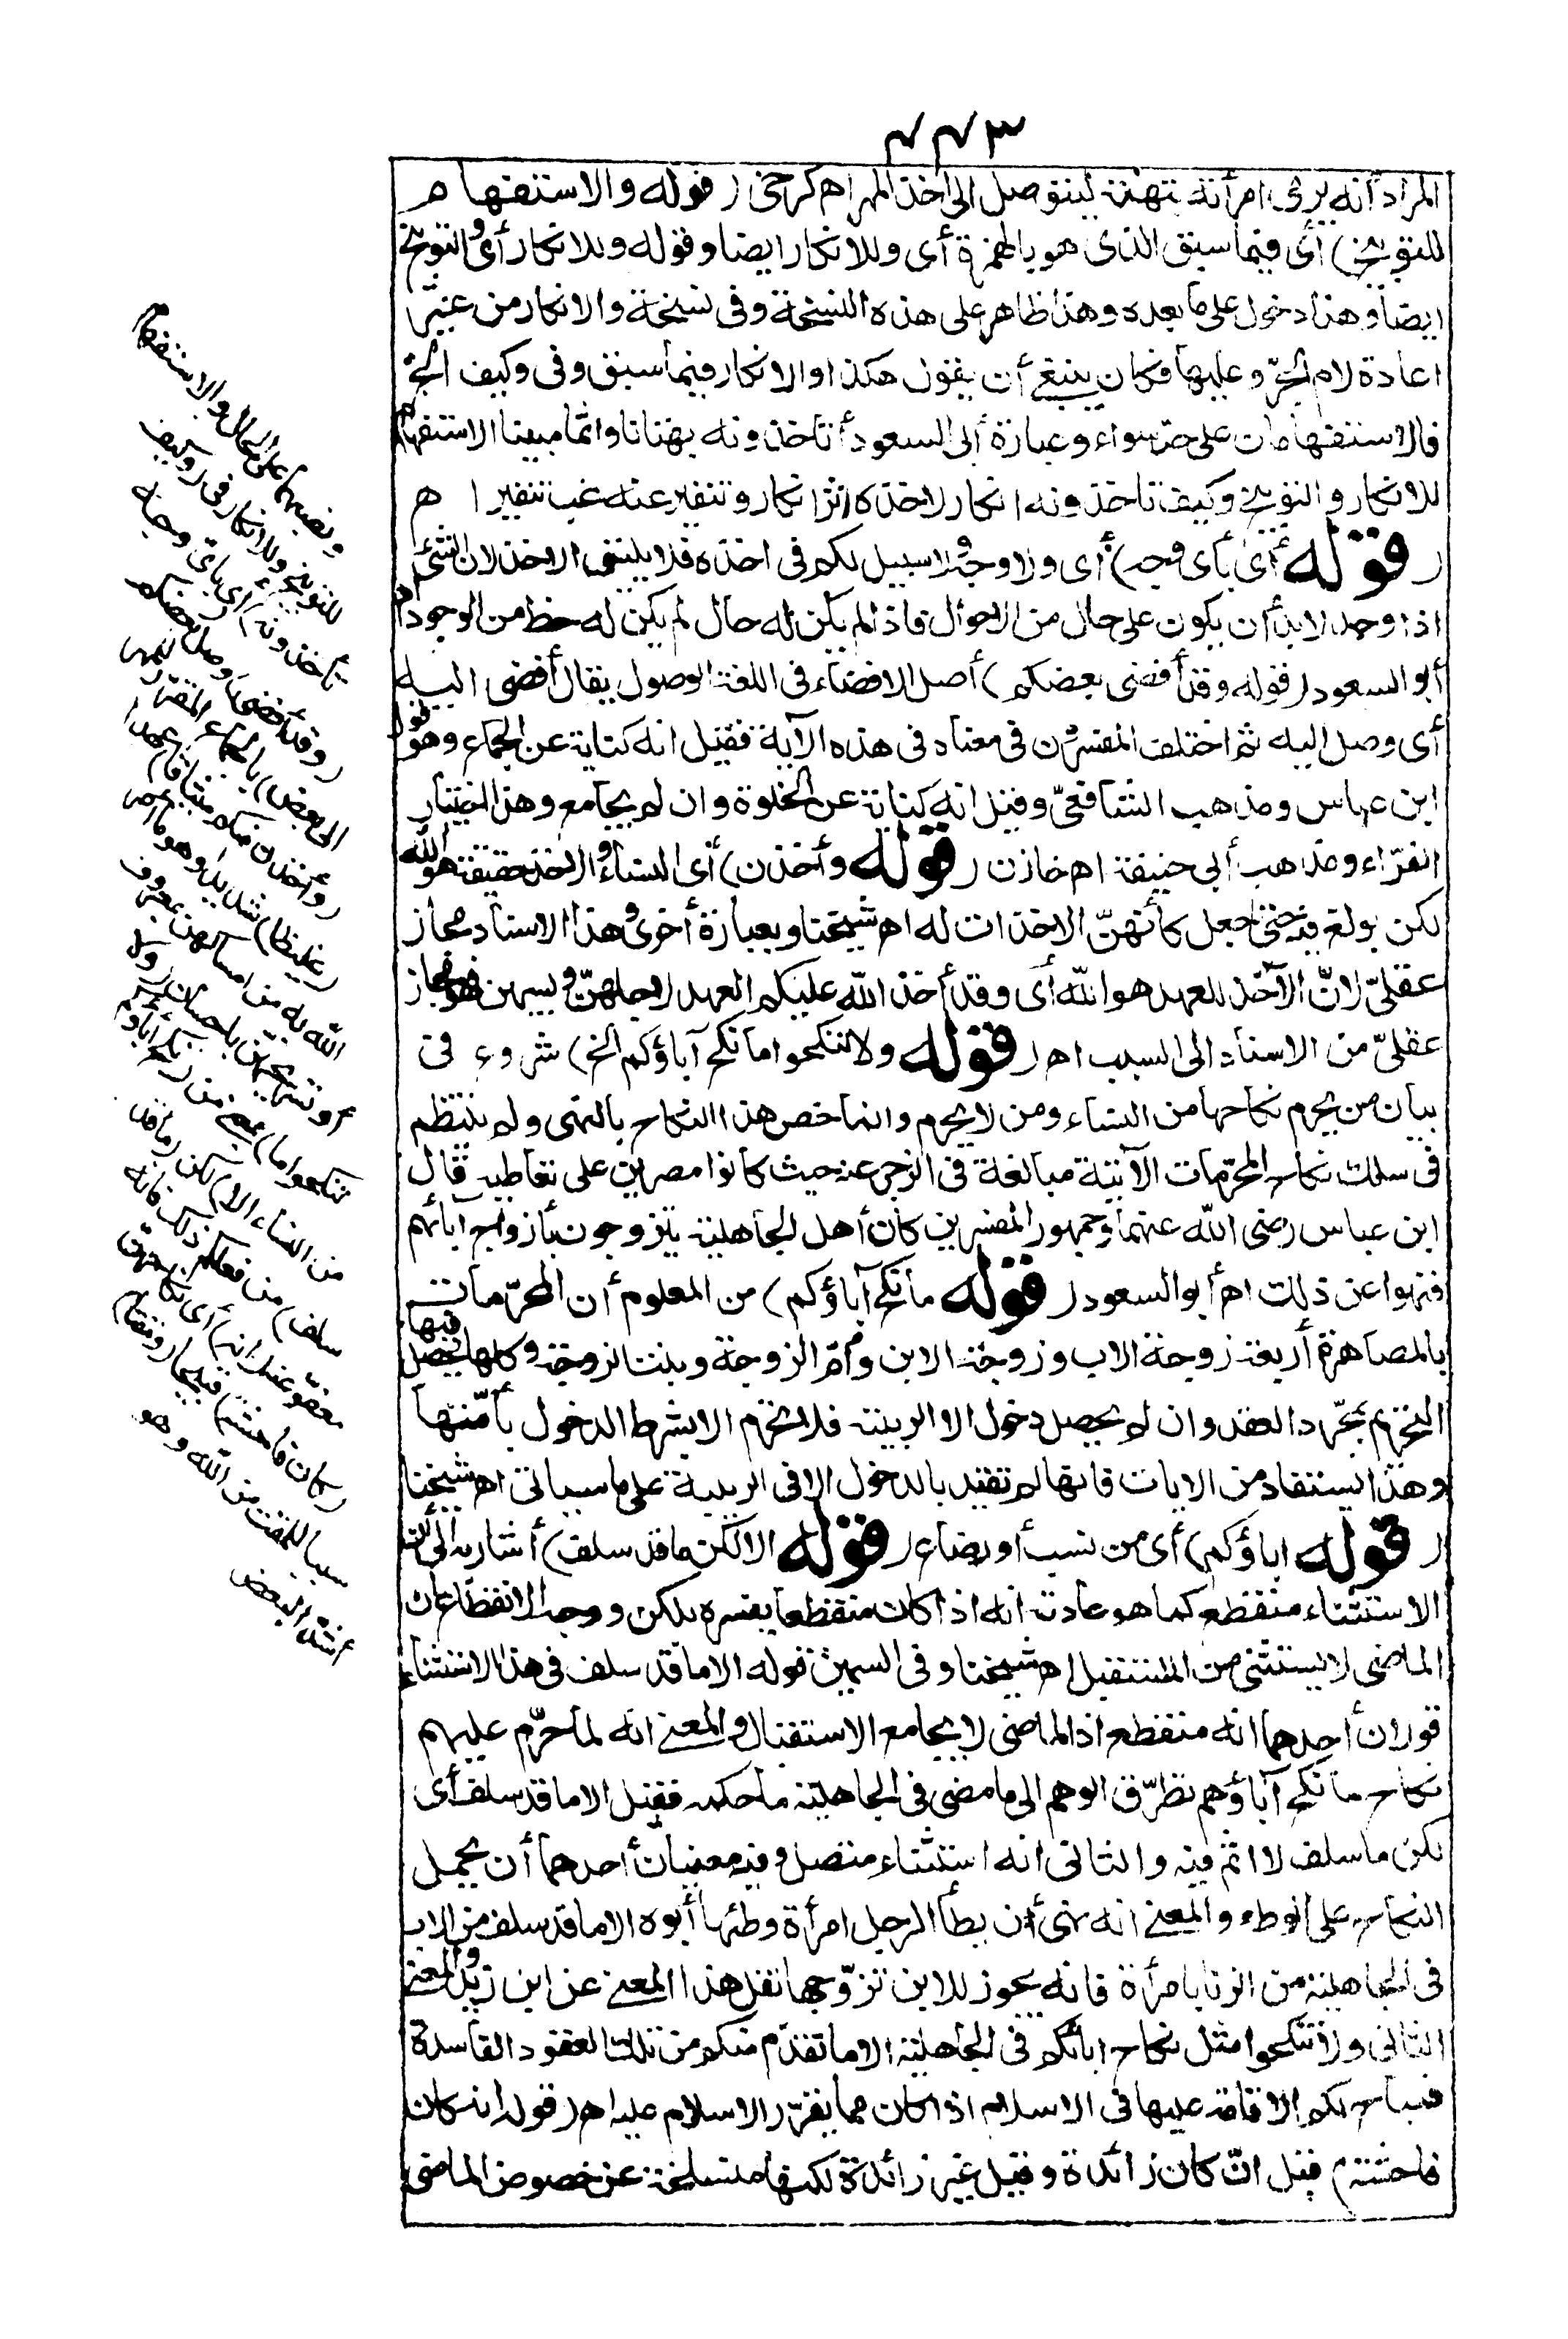 ٤٤٣
المراد أنه يرمى امرأته بتهمة ليتوصل الى أخذ المهر اهـ كرخى (قوله والاستفهام
للتوبيخ) أى فيما سبق الذى هو بالهمزة أى وللانكار ايضا وقوله وللانكار أى وللتوبيخ
ايضا وهذا دخول على ما بعده وهذا ظاهر على هذه النسخة وفى نسخة والانكار من غير
اعادة لام الجرّ وعليها فكان ينبغى أن يقول هكذا والانكار فيما سبق وفى وكيف الخ
فالاستفهامان على حدّ سواء وعبارة أبى السعود أتأخذونه بهتانا واثما مبينا الاستفهام
للانكار والتوبيخ وكيف تاخذونه انكار لاخذه اثر انكار وتنفير عنه غب تنفير اهـ
(قوله أى بأى وجه) أى ولا وجه ولا سبيل لكم فى اخذه فلا يليق الاخذ لان الشئ
اذا وجد لابد أن يكون على حال من الاحوال فاذا لم يكن له حال لم يكن له حظ من الوجود اهـ
أبو السعود (قوله وقد أفضى بعضكم) أصل الافضاء فى اللغة الوصول يقال أفضى اليه
أى وصل اليه ثم اختلف المفسرون فى معناه فى هذه الآية فقيل انه كناية عن الجماع وهو قول
ابن عباس ومذهب الشافعىّ وقيل انه كناية عن الخلوة وان لم يجامع وهذا اختيار
الفرّاء ومذهب أبى حنيفة اهـ خازن (قوله وأخذن) أى النساء والاخذ حقيقة هو الله
لكن بولغ فيه حتى جعل كأنهنّ الاخذات له اهـ شيخنا وبعبارة أخرى وهذا الاسناد مجاز
عقلىّ لانّ الآخذ للعهد هو الله أى وقد أخذ الله عليكم العهد لاجلهنّ وبسببهن فهو مجاز
عقلىّ من الاسناد الى السبب اهـ (قوله ولا تنكحوا ما نكح آباؤكم الخ) شروع فى
بيان من يحرم نكاحها من النساء ومن لا يحرم وانما خص هذا النكاح بالنهى ولم ينتظم
فى سلك نكاح المحرّمات الآتية مبالغة فى الزجر عنه حيث كانوا مصرين على تعاطيه قال
ابن عباس رضى الله عنهما وجمهور المفسرين كان أهل الجاهلية يتزوجون بأزواج آبائهم
فنهوا عن ذلك اهـ أبو السعود (قوله ما نكح آباؤكم) من المعلوم أن المحرّمات
بالمصاهرة أربعة زوجة الاب وزوجة الابن وأمّ الزوجة وبنت الزوجة وكلها يحصل فيها
التحريم بمجرّد العقد وان لم يحصل دخول الا الربيبة فلا تحرم الا بشرط الدخول بأمّها
وهذا يستفاد من الايات فانها لم تقيد بالدخول الا فى الربيبة على ما سيأتى اهـ شيخنا
(قوله اباؤكم) أى من نسب أو رضاع (قوله الا لكن ما قد سلف) أشار به الى أن
الاستثناء منقطع كما هو عادته انه اذا كان منقطعا يفسره بلكن ووجه الانقطاع ان
الماضى لا يستثنى من المستقبل اهـ شيخنا وفى السمين قوله الا ما قد سلف فى هذا الاستثناء
قولان أحدهما انه منقطع اذ الماضى لا يجامع الاستقبال والمعنى انه لما حرّم عليهم
نكاح ما نكح آباؤهم تطرّق الوهم الى ما مضى فى الجاهلية ما حكمه فقيل الا ما قد سلف أى
لكن ما سلف لا اثم فيه والثانى انه استثناء متصل وفيه معنيان أحدهما أن يحمل
النكاح على الوطء والمعنى انه نهى أن يطأ الرجل امرأة وطئها أبوه الا ما قد سلف من الاب
فى الجاهلية من الزنا بامرأة فانه يجوز للابن تزوّجها نقل هذا المعنى عن ابن زيد والمعنى
الثانى ولا تنكحوا مثل نكاح ابائكم فى الجاهلية الا ما تقدّم منكم من تلك العقود الفاسدة
فمباح لكم الاقامة عليها فى الاسلام اذا كان مما يقرّر الاسلام عليه اهـ (قوله انه كان
فاحشة) قيل انّ كان زائدة وقيل غير زائدة لكنها منسلخة عن خصوص الماضى
ونصبهما على الحال والاستفهام
للتوبيخ وللانكار فى (وكيف
تأخذونه) أى بأىّ وجه
(وقد أفضى) وصل (بعضكم
الى بعض) بالجماع المقرّر للمهر
(وأخذن منكم ميثاقا) عهدا
(غليظا) شديدا وهو ما أمر
الله به من امساكهن بمعروف
أو تسريحهن باحسان (ولا
تنكحوا ما) بمعنى من (نكح آباؤكم
من النساء الا) لكن (ما قد
سلف) من فعلكم ذلك فانه
معفوّ عنه (انه) أى نكاحهن
(كان فاحشة) قبيحا (ومقتا)
سببا للمقت من الله وهو
أشدّ البغض